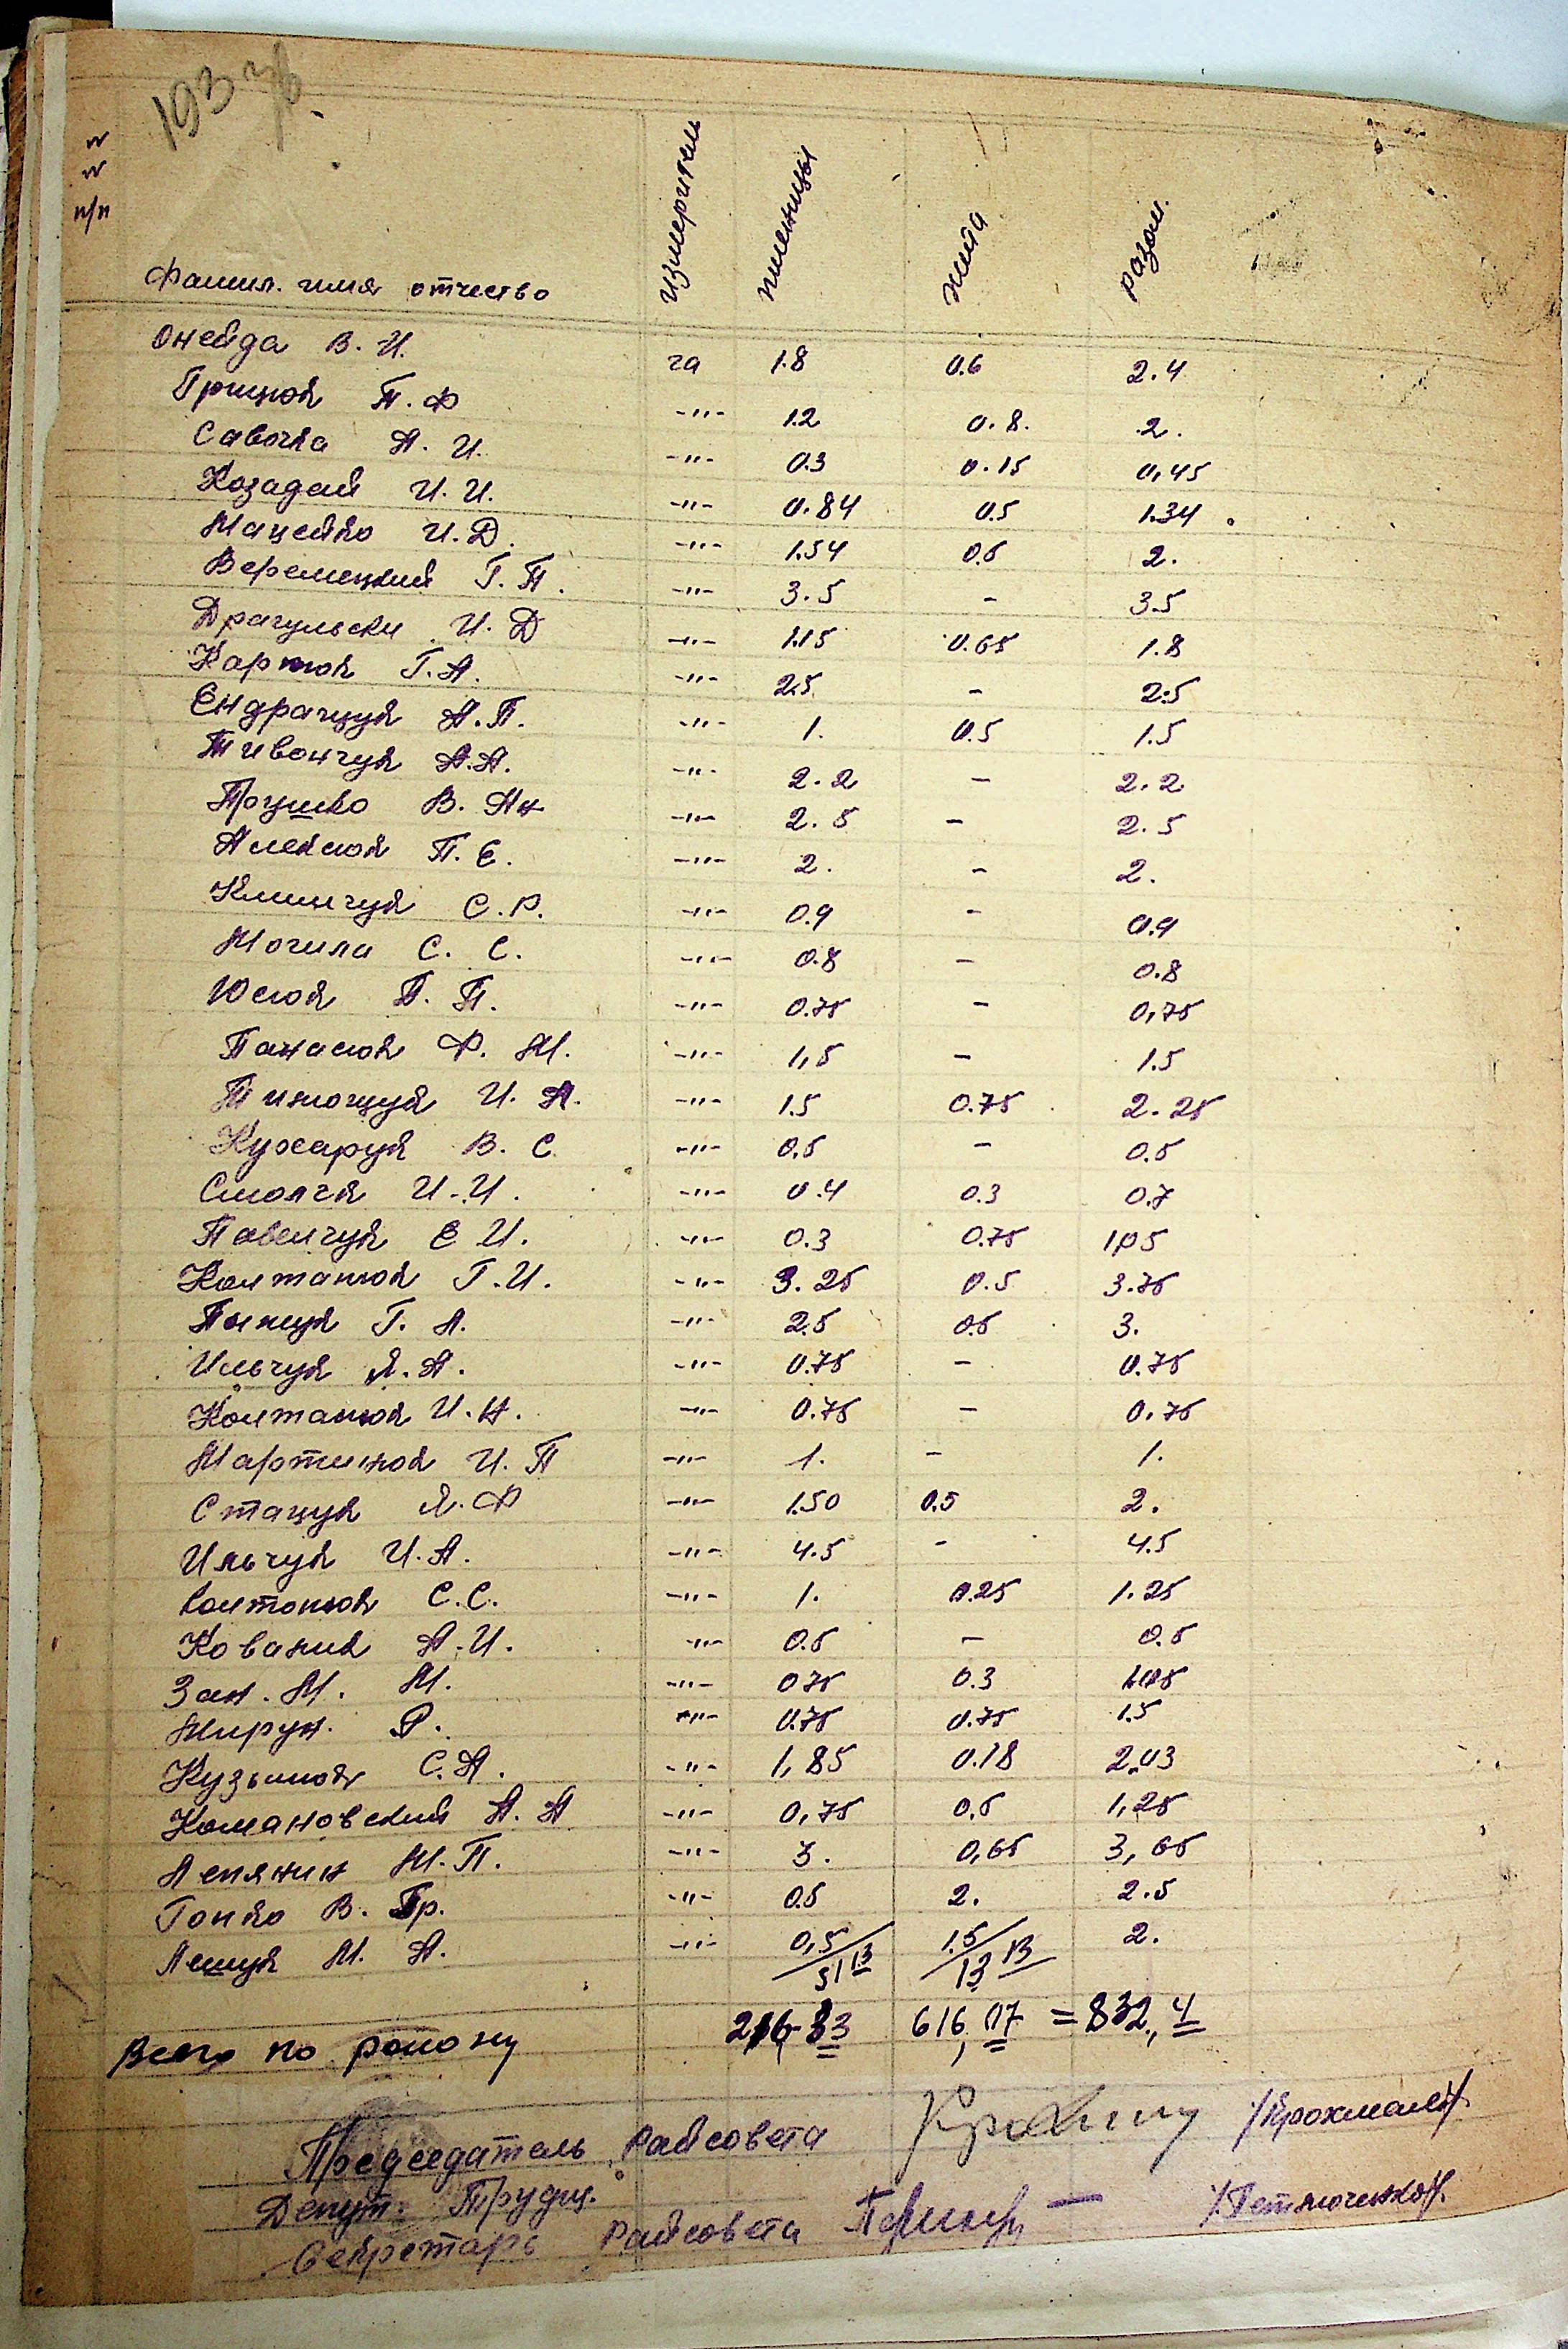 193 зв
№ № п/п Фамил. имя отчество измеритель пшеницы жита разом.
Онейда В. И. га 1.8 0.6 2.4
Грицюк П. Ф -"- 1.2 0.8. 2.
Савочка А. И. -"- 0.3 0.15 0,45
Козадай И. И. -"- 0.84 0.5 1.34
Мацейко И. Д. -"- 1.54 0.5 2.
Веремецкий Г. П. -"- 3.5 - 3.5
Драгульски И. Д -"- 1.15 0.65 1.8
Карпюк Г. А. -"- 2.5 - 2.5
Ендращук А. П. -"- 1. 0.5 1.5
Тивончук А. А. -"- 2.2 - 2.2
Грушко В. Ан -"- 2.5 - 2.5
Алексюк П. Е. -"- 2. - 2.
Климчук С. Р. -"- 0.9 - 0.9
Могила С. С. -"- 0.8 - 0.8
Юсюк П. П. -"- 0.75 - 0,75
Панасюк Ф. М. -"- 1,5 - 1.5
Тинощук И. А. -"- 1.5 0.75 2.25
Кухарук В. С. -"- 0,5 - 0.5
Смоляк И. И. -"- 0.4 0.3 0.7
Павлчук Е И. -"- 0.3 0.75 1,05
Колтанюк Г. И. -"- 3.25 0.5 3.75
Г. А. -"- 2.5 0.5 3.
Ильчук Я. А. -"- 0.75 - 0.75
Колтанюк И. Н. -"- 0.75 - 0.75
Мартинюк И. П -"- 1. - 1.
Стацук Я. Ф -"- 1.50 0.5 2.
Ильчук И. А. -"- 4.5 - 4.5
Колтонюк С. С. -"- 1. 0.25 1.25
Кованик А. И. -"- 0.5 - 0.5
Зан. М. М. -"- 075 0.3 1.05
Мирук. Р. -"- 0.75 0.75 1.5
Кузьмюк С. А. -"- 1,85 0.18 2,03
Комановский А. А -"- 0,75 0.5 1,25
Лепянин М. П. -"- 3. 0,65 3,65
Гопко В. Гр. -"- 0.5 2. 2.5
Лещук М. А. -"- 0,5 1.5 2.
51 13 13 13
Всего по району 216,33 616,07 = 832,4
Председатель Райсовета /Крохмаль/
Депут. Трудящ.
Секретарь Райсовета /Петлюченко/.